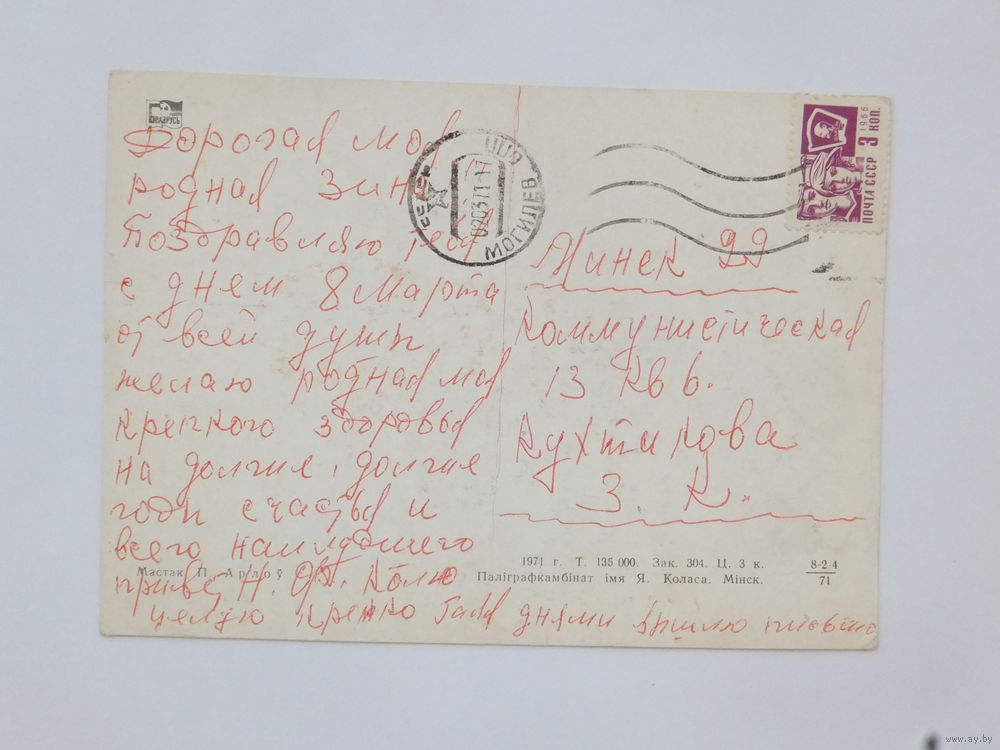 БЕЛАРУСЬ
Дорогая моя
родная Зина
Поздравляю тебя
с днем 8 Марта
от всей души
желаю родная моя
крепкого здоровья
на долгие, долгие
годы счастья и
всего наилучшего
Мастак П. Арлоў
привет Н. Колю
целую крепко Галя днями вышлю письмо
СССР МОГИЛЕВ
020371-17
1966
3 КОП.
ПОЧТА СССР
Минск 22
Коммунистическая
13 кв 6.
Кухтикова
З. К.
1971 г. Т. 135 000. Зак. 304. Ц. 3 к.
Паліграфкамбінат імя Я. Коласа. Мінск.
8-2-4
71
www.ay.by